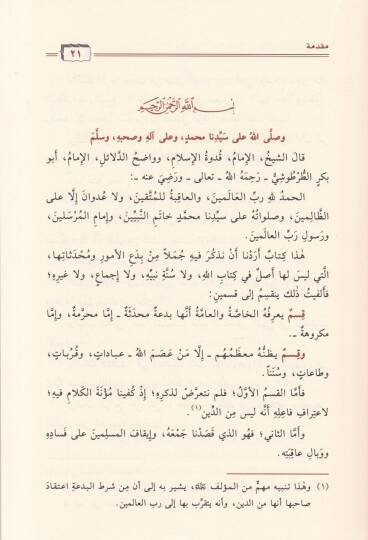 مقدمة
٢١
بِسْمِ اللَّهِ الرَّحْمَنِ الرَّحِيمِ
وصلَّى اللهُ على سَيِّدِنا محمدٍ، وعلى آلهِ وصحبهِ، وسلَّمَ
قالَ الشيخُ، الإمامُ، قُدوةُ الإسلامِ، وواضحُ الدَّلائلِ، الإمامُ، أبو
بكرٍ الطُّرْطُوشِيُّ ـ رَحِمَهُ اللهُ ـ تعالى ـ ورَضِيَ عنه ـ:
الحمدُ للهِ ربِّ العَالَمينَ، والعاقِبةُ للمُتَّقينَ، ولا عُدوانَ إلَّا على
الظَّالِمينَ، وصلواتُهُ على سيِّدِنا محمَّدٍ خاتَمِ النَّبِيِّينَ، وإمامِ المُرْسَلينَ،
ورسولِ رَبِّ العالَمينَ.
هٰذا كِتابٌ أرَدْنا أَنْ نذكُرَ فيهِ جُمَلاً مِنْ بِدَعِ الأمورِ ومُحْدَثاتِها،
الَّتي ليسَ لها أصلٌ في كتابِ اللهِ، ولا سُنَّةِ نبيِّهِ، ولا إجماعٍ، ولا غيرِهِ؛
فألفَيتُ ذٰلك ينقسِمُ إلى قسمينِ:
قِسمٌ يعرِفُهُ الخاصَّةُ والعامَّةُ أنَّها بدعةٌ محدَثَةٌ ـ إمَّا محرَّمة، وإمَّا
مكروهة ـ.
وقِسمٌ يظنُّهُ معظَمُهُم ـ إلَّا مَنْ عَصَمَ اللهُ ـ عباداتٍ، وقُرُباتٍ،
وطاعاتٍ، وسُنَناً.
فأمَّا القسمُ الأوَّلُ؛ فلم نتعرَّضْ لذكرِهِ؛ إذْ كُفينا مُؤْنَةَ الكَلامِ فيهِ؛
لاعترافِ فاعِلِهِ أنَّه ليس مِن الدِّينِ(١).
وأمَّا الثاني؛ فهُو الذي قَصَدْنا جَمْعَهُ، وإيقافَ المسلِمينَ على فَسادِهِ
ووَبالِ عاقِبَتِهِ.
(١) وهٰذا تنبيه مهمٌّ من المؤلف ﵀، يشير به إلى أن مِن شرط البدعةِ اعتقادَ
صاحبها أنها من الدين، وأنه يتقرَّب بها إلى رب العالمين.